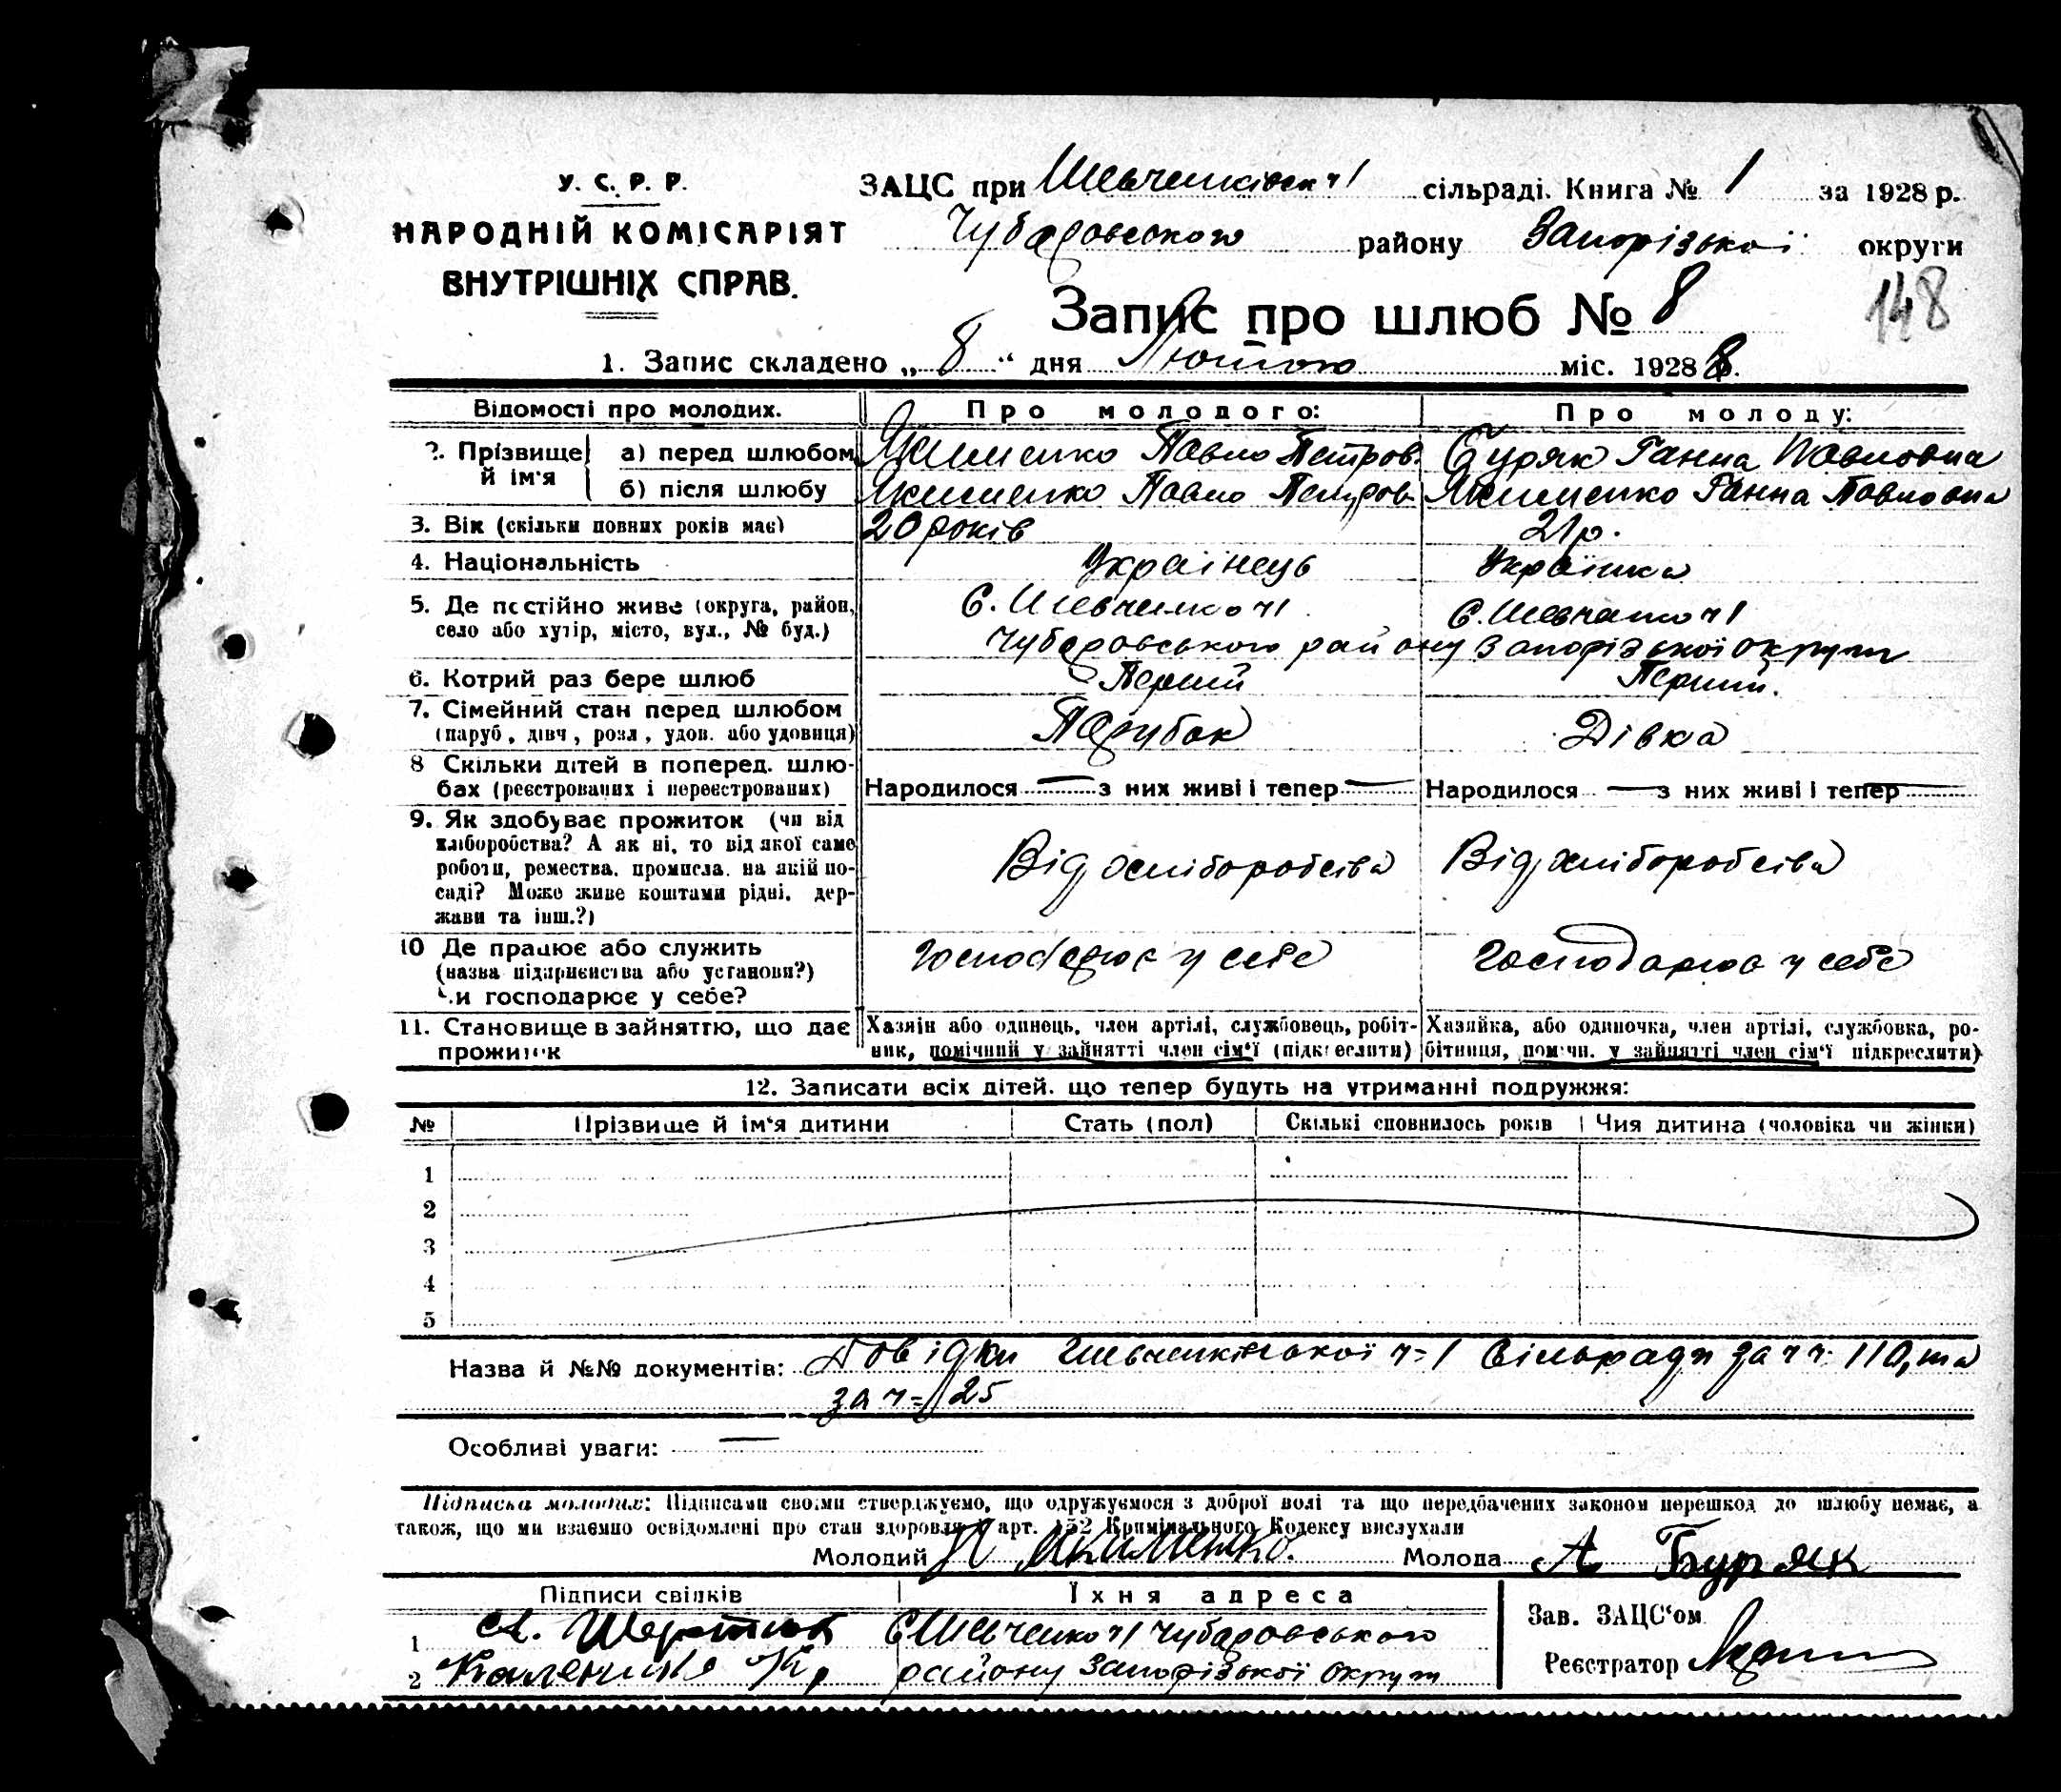 У. С. Р. Р.
НАРОДНІЙ КОМІСАРІЯТ
ВНУТРІШНІХ СПРАВ.
ЗАЦС при Шевченківськ ч1 сільраді. Книга № 1 за 1928 р.
Чубаровського району Запорізької округи
148
Запис про шлюб № 8
1. Запис складено „ 8 “ дня Лютого міс. 1928 8 р.
Відомості про молодих. Про молодого: Про молоду:
2. Прізвище й ім'я а) перед шлюбом Якименко Павло Петров. Буряк Ганна Павловна
б) після шлюбу Якименко Павло Петров. Якименко Ганна Павловна
3. Вік (скільки повних років має) 20 років 21 р.
4. Національність Українець Українка
5. Де постійно живе (округа, район, село або хутір, місто, вул., № буд.) С. Шевченко ч1 С. Шевченко ч1
Чубаровського району Запорізької округи
6. Котрий раз бере шлюб Перший Перший.
7. Сімейний стан перед шлюбом (паруб., дівч., розл., удов. або удовиця) Парубок Дівка
8 Скільки дітей в поперед. шлюбах (реєстрованих і нереєстрованих) Народилося — з них живі і тепер — Народилося — з них живі і тепер —
9. Як здобуває прожиток (чи від хліборобства? А як ні, то від якої саме роботи, ремества, промисла, на якій посаді? Може живе коштами рідні, держави та інш.?) Від хліборобства Від хліборобства
10 Де працює або служить (назва підприємства або установи?) Чи господарює у себе? Господарює у себе Господарює у себе
11. Становище в зайняттю, що дає прожиток Хазяїн або одинець, член артілі, службовець, робітник, помічний у зайнятті член сім'ї (підкреслити) Хазяйка, або одиночка, член артілі, службовка, робітниця, помічн. у зайнятті член сім'ї підкреслити)
12. Записати всіх дітей, що тепер будуть на утриманні подружжя:
№ Прізвище й ім'я дитини Стать (пол) Скількі сповнилось років Чия дитина (чоловіка чи жінки)
1
2
3
4
5
Назва й №№ документів: Довідки Шевченківської ч=1 Сільради за чч. 110, та
за ч= 125
Особливі уваги: —
Підписка молодих: Підписами своїми стверджуємо, що одружуємося з доброї волі та що передбачених законом перешкод до шлюбу немає, а
також, що ми взаємно освідомлені про стан здоровля й арт. 152 Кримінального Кодексу вислухали
Молодий П Якименко. Молода А Буряк
Підписи свідків Їхня адреса Зав. ЗАЦС'ом
1 С Шевченко ч1 Чубаровського
2 району Запорізької округи Реєстратор